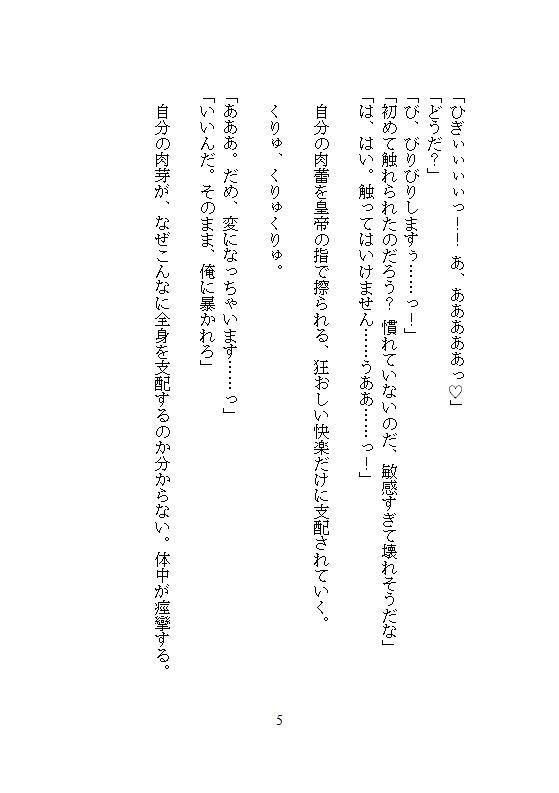 「ひぎぃぃぃぃっ！！ あ、あああああっ♡」
「どうだ？」
「び、びりびりしますぅ……っ！」
「初めて触れられたのだろう？ 慣れていないのだ、敏感すぎて壊れそうだな」
「は、はい。触ってはいけません……うああ……っ！」
自分の肉蕾を皇帝の指で擦られる、狂おしい快楽だけに支配されていく。
くりゅ、くりゅくりゅ。
「あああ。だめ、変になっちゃいます……っ」
「いいんだ。そのまま、俺に暴かれろ」
自分の肉芽が、なぜこんなに全身を支配するのか分からない。体中が痙攣する。
5